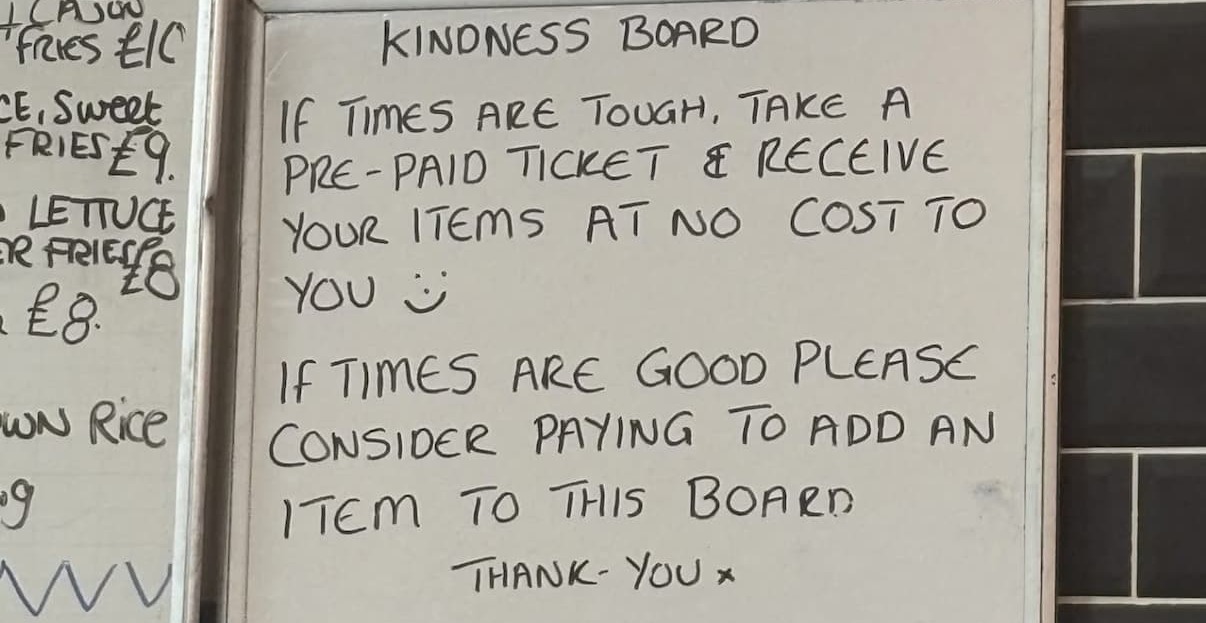 CAJUN
FRIES £10
CE, Sweet
FRIES £9.
LETTUCE
ER FRIES £8
£8.
WN Rice
KINDNESS BOARD
IF TIMES ARE TOUGH, TAKE A
PRE-PAID TICKET & RECEIVE
YOUR ITEMS AT NO COST TO
YOU :)
IF TIMES ARE GOOD PLEASE
CONSIDER PAYING TO ADD AN
ITEM TO THIS BOARD
THANK-YOU x